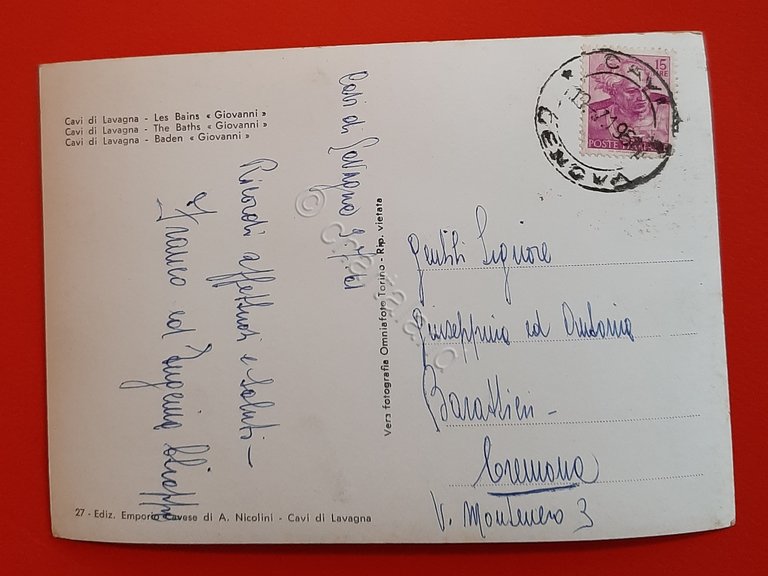 Cavi di Lavagna - Les Bains « Giovanni »
Cavi di Lavagna - The Baths « Giovanni »
Cavi di Lavagna - Baden « Giovanni »
Cavi di Lavagna
Ricordi affettuosi e saluti -
Franco ed Eugenia
Vera fotografia Omniafoto Torino - Rip. vietata
15
LIRE
POSTE
CAVI
Gentili Signore
Giuseppina ed Antonia
Barattieri -
Cremona
V. Montenero 3
27 - Ediz. Emporio Cavese di A. Nicolini - Cavi di Lavagna